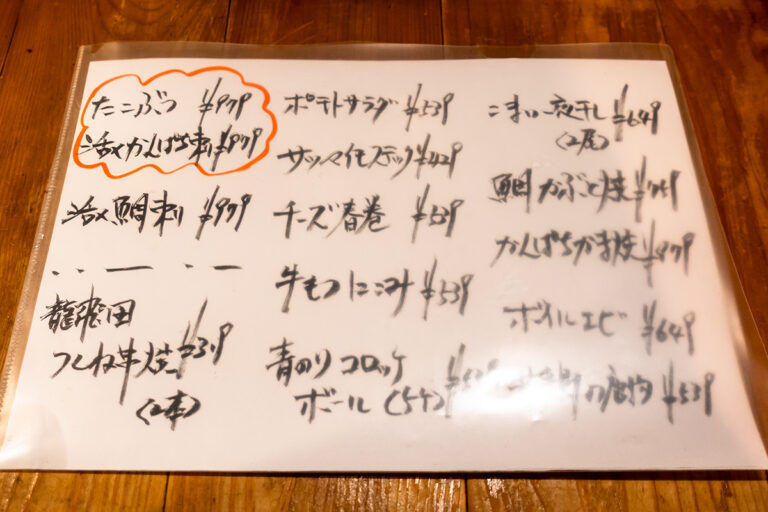 たこぶつ ¥979
活〆かんぱち刺 ¥979
活〆鯛刺り ¥979
龍飛田
つくね串焼 ¥539
(2本)
ポテトサラダ ¥539
サツマイモスティック ¥429
チーズ春巻 ¥539
牛もつにこみ ¥539
青のりコロッケ
ボール (5ケ)
こまい一夜干し ¥649
(2尾)
鯛かぶと焼 ¥759
かんぱちかま焼 ¥979
ボイルエビ ¥649
¥539